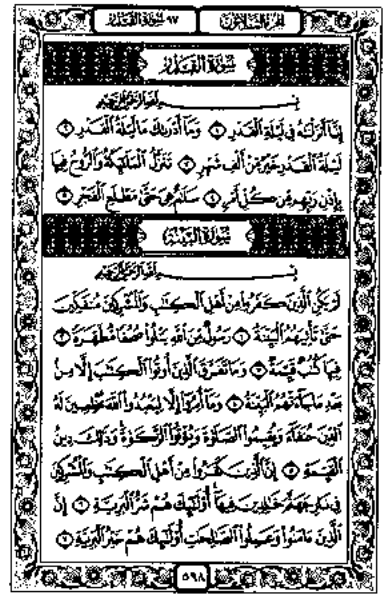 الجزء الثلاثون
٩٧ سورة القدر
سورة القدر
بسم الله الرحمن الرحيم
إنا أنزلنه في ليلة القدر ١ وما أدرىك ما ليلة القدر ٢
ليلة القدر خير من ألف شهر ٣ تنزل الملئكة والروح فيها
بإذن ربهم من كل أمر ٤ سلم هي حتى مطلع الفجر ٥
سورة البينة
بسم الله الرحمن الرحيم
لم يكن الذين كفروا من أهل الكتب والمشركين منفكين
حتى تأتيهم البينة ١ رسول من الله يتلوا صحفا مطهرة ٢
فيها كتب قيمة ٣ وما تفرق الذين أوتوا الكتب إلا من
بعد ما جاءتهم البينة ٤ وما أمروا إلا ليعبدوا الله مخلصين له
الدين حنفاء ويقيموا الصلوة ويؤتوا الزكوة وذلك دين
القيمة ٥ إن الذين كفروا من أهل الكتب والمشركين
في نار جهنم خلدين فيها أولئك هم شر البرية ٦ إن
الذين ءامنوا وعملوا الصلحت أولئك هم خير البرية ٧
٥٩٨